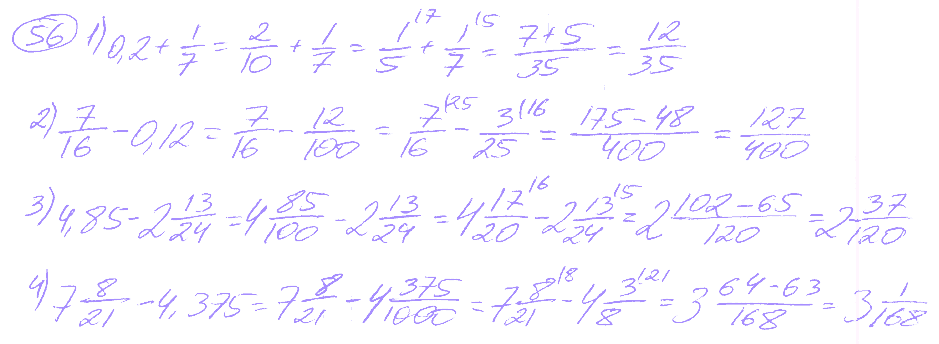 56 1) 0,2 + 1/7 = 2/10 + 1/7 = 1/5 ⁽⁷ + 1/7 ⁽⁵ = (7+5)/35 = 12/35
2) 7/16 - 0,12 = 7/16 - 12/100 = 7/16 ⁽²⁵ - 3/25 ⁽¹⁶ = (175-48)/400 = 127/400
3) 4,85 - 2 13/24 = 4 85/100 - 2 13/24 = 4 17/20 ⁽⁶ - 2 13/24 ⁽⁵ = 2 (102-65)/120 = 2 37/120
4) 7 8/21 - 4,375 = 7 8/21 - 4 375/1000 = 7 8/21 ⁽⁸ - 4 3/8 ⁽²¹ = 3 (64-63)/168 = 3 1/168